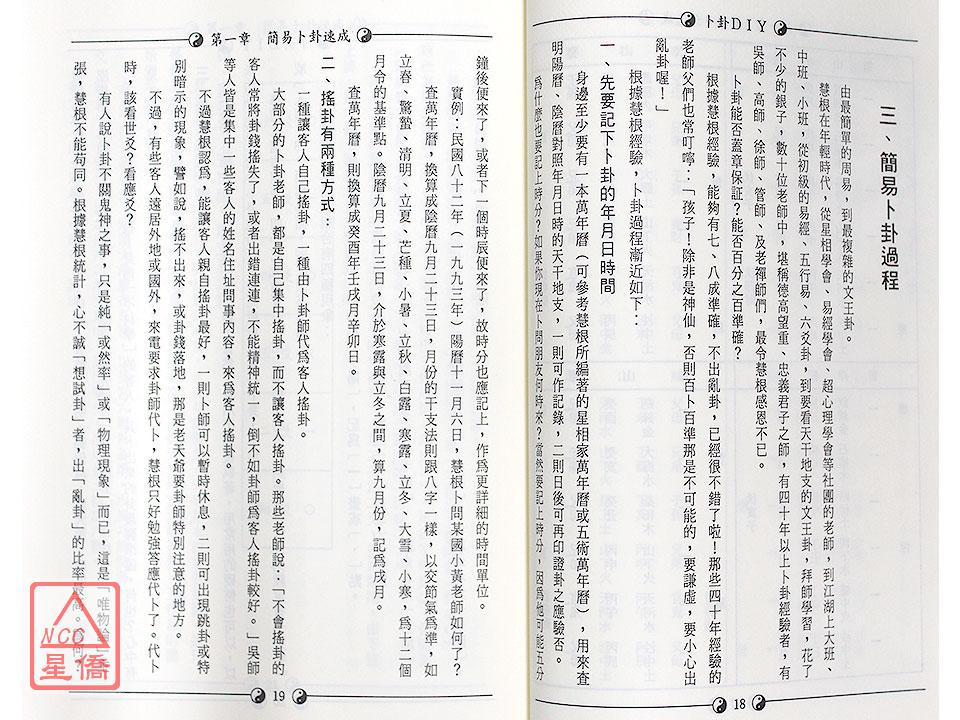 卜卦DIY
三、簡易卜卦過程
由最簡單的周易，到最複雜的文王卦。
慧根在年輕時代，從星相學會、易經學會、超心理學會等社團的老師，到江湖上大班、
中班、小班，從初級的易經、五行易、六爻卦，到要看天干地支的文王卦，拜師學習，花了
不少的銀子，數十位老師中，堪稱德高望重、忠義君子之師，有四十年以上卜卦經驗者，有
吳師、高師、徐師、管師、及老禪師們，最令慧根感恩不已。
卜卦能否蓋章保証？能否百分之百準確？
根據慧根經驗，能夠有七、八成準確，不出亂卦，已經很不錯了啦！那些四十年經驗的
老師父們也常叮嚀：「孩子！除非是神仙，否則百卜百準那是不可能的，要謙虛，要小心出
亂卦喔！」
根據慧根經驗，卜卦過程漸近如下：
一、先要記下卜卦的年月日時間
身邊至少要有一本萬年曆（可參考慧根所編著的星相家萬年曆或五術萬年曆），用來查
明陽曆、陰曆對照年月日時的天干地支，一則可作記錄，二則日後可再印證卦之應驗否。
爲什麼也要記上時分？如果你現在卜問朋友何時來？當然要記上時分，因爲他可能五分
18
第一章　簡易卜卦速成
鐘後便來了，或者下一個時辰便來了，故時分也應記上，作爲更詳細的時間單位。
實例：民國八十二年（一九九三年）陽曆十一月六日，慧根卜問某國小黃老師如何了？
查萬年曆，換算成陰曆九月二十三日，月份的干支法則跟八字一樣，以交節氣爲準，如
立春、驚蟄、清明、立夏、芒種、小暑、立秋、白露、寒露、立冬、大雪、小寒，爲十二個
月令的基準點。陰曆九月二十三日，介於寒露與立冬之間，算九月份，記爲戌月。
查萬年曆，則換算成癸酉年壬戌月辛卯日。
二、搖卦有兩種方式：
一種讓客人自己搖卦，一種由卜卦師代爲客人搖卦。
大部分的卜卦老師，都是自己集中搖卦，而不讓客人搖卦。那些老師說：「不會搖卦的
客人常將卦錢搖失了，或者出錯連連，不能精神統一，倒不如卦師爲客人搖卦較好。」吳師
等人皆是集中一些客人的姓名住址問事內容，來爲客人搖卦。
不過慧根認爲，能讓客人親自搖卦最好，一則卜師可以暫時休息，二則可出現跳卦或特
別暗示的現象，譬如說，搖不出來，或卦錢落地，那是老天爺要卦師特別注意的地方。
不過，有些客人遠居外地或國外，來電要求卦師代卜，慧根只好勉強答應代卜了。代卜
時，該看世爻？看應爻？
有人說卜卦不關鬼神之事，只是純「或然率」或「物理現象」而已，這是「唯物論」
張，慧根不能苟同。根據慧根統計，心不誠「想試卦」者，出「亂卦」的比率最高。爲何？
19
NCC
星僑